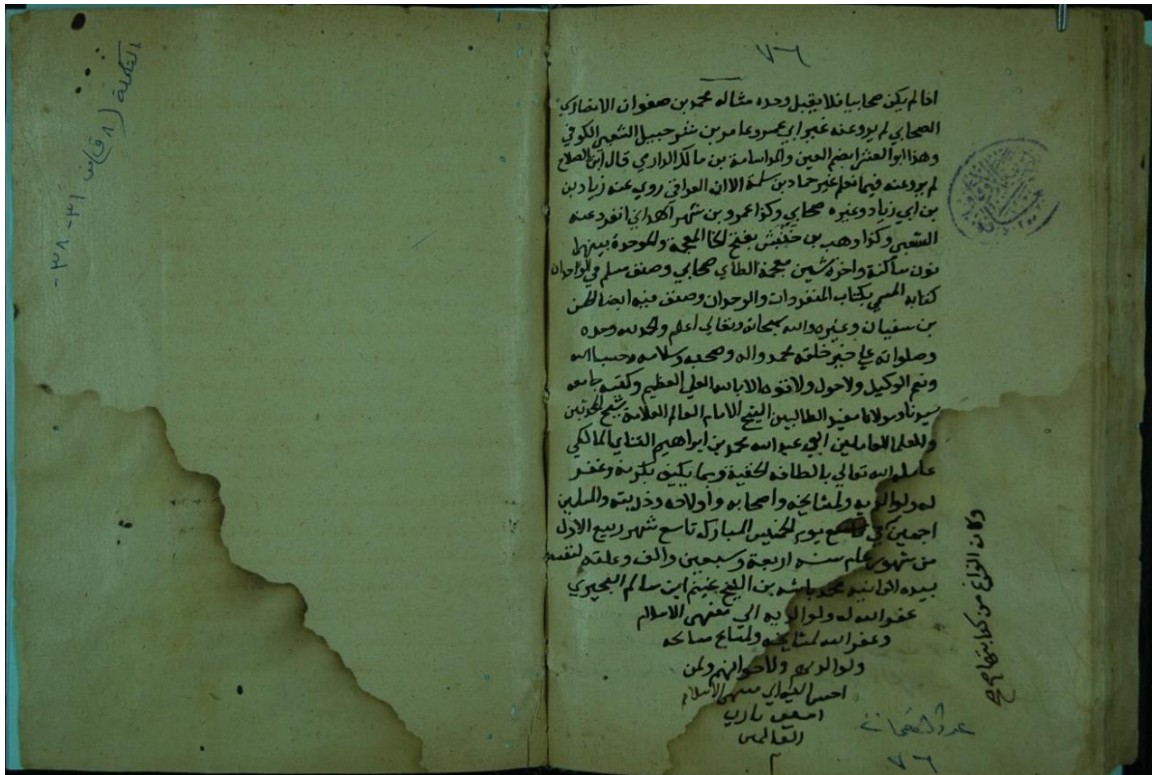 ٧٦
اذا لم يكن صحابيا فلا يقبل وحده مثاله محمد بن صفوان الانصاري
الصحابي لم يرو عنه غير ابي عمرو عامر بن شرحبيل الشعبي الكوفي
وهذا ابو العشرا بضم العين والد اسامة بن مالك الدارمي قال ابن الصلاح
لم يرو عنه فيما نعلم غير حماد بن سلمة الا ان العراقي روي عنه زياد بن
بن ابي زياد وغيره صحابي وكذا عمرو بن شهر انفرد عنه
الشعبي وكذا وهب بن خنبش بفتح الخا المعجمة والموحدة بينهما
نون ساكنة واخره شين معجمة الطاي صحابي وصنف مسلم في الواحدان
كتابه المسمي بكتاب المنفردات والوحدان وصنف فيه ايضا الحسن
بن سفيان وغيره والله سبحانه وتعالي اعلم والحمد لله وحده
وصلواته علي خير خلقه محمد واله وصحبه وسلامه وحسبنا الله
ونعم الوكيل ولا حول ولا قوة الا بالله العلي العظيم وكتبه جامعه
سيدنا ومولانا مفيد الطالبين الشيخ الامام العالم العلامة شيخ المحدثين
والعلما العاملين ابي عبد الله محمد بن ابراهيم التتاي المالكي
عامله الله تعالي بالطافه الخفية وبما يليق بكرمه وغفر
له ولوالديه ولمشايخه واصحابه واولاده وذريته والمسلمين
اجمعين في يوم الخميس المبارك تاسع شهر ربيع الاول
من شهور عام سنه اربعة وسبعين والف وعلقه لنفسه
بيده الفانيه محمد بن الشيخ غنيم ابن سالم البحيري
غفر الله له ولوالديه الي منتهي الاسلام
وغفر الله لمشايخه ولمشايخ مشايخه
ولوالديهم ولاخوانهم ولمن
احسن اليه الي منتهي الاسلام
امين يارب
العالمين
م
وكان الفراغ من كتابتها
عدد الصفحات
٧٦
التكملة
٣١ - ٣٨ -